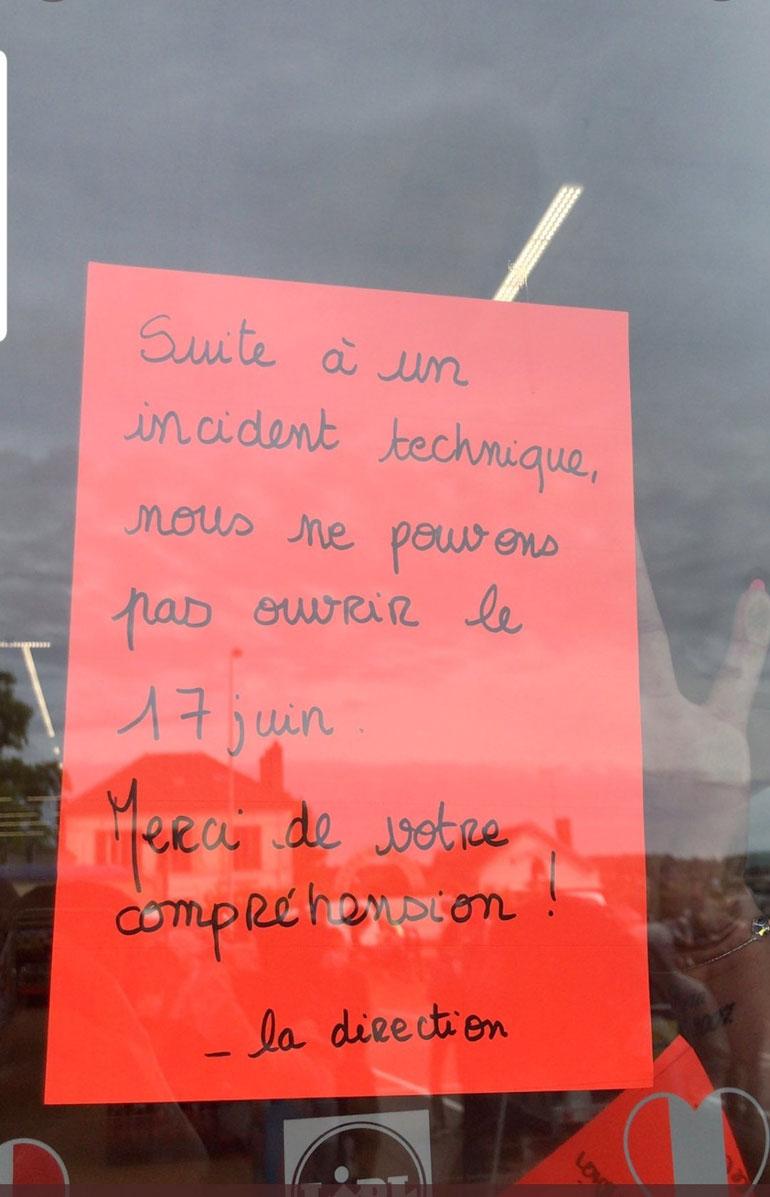 Suite à un
incident technique,
nous ne pouvons
pas ouvrir le
17 juin.
Merci de votre
compréhension !
_ la direction
LiDL